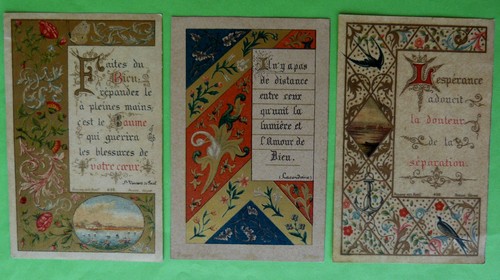 Faites du
Bien:
répandez le
à pleines mains
c'est le Baume
qui guérira
les blessures de
votre cœur.
Il n'y a pas
de distance
entre ceux
qu'unit la
lumière et
l'Amour de
Dieu.
(Lacordaire)
L'espérance
adoucit
la douleur
de la
séparation.